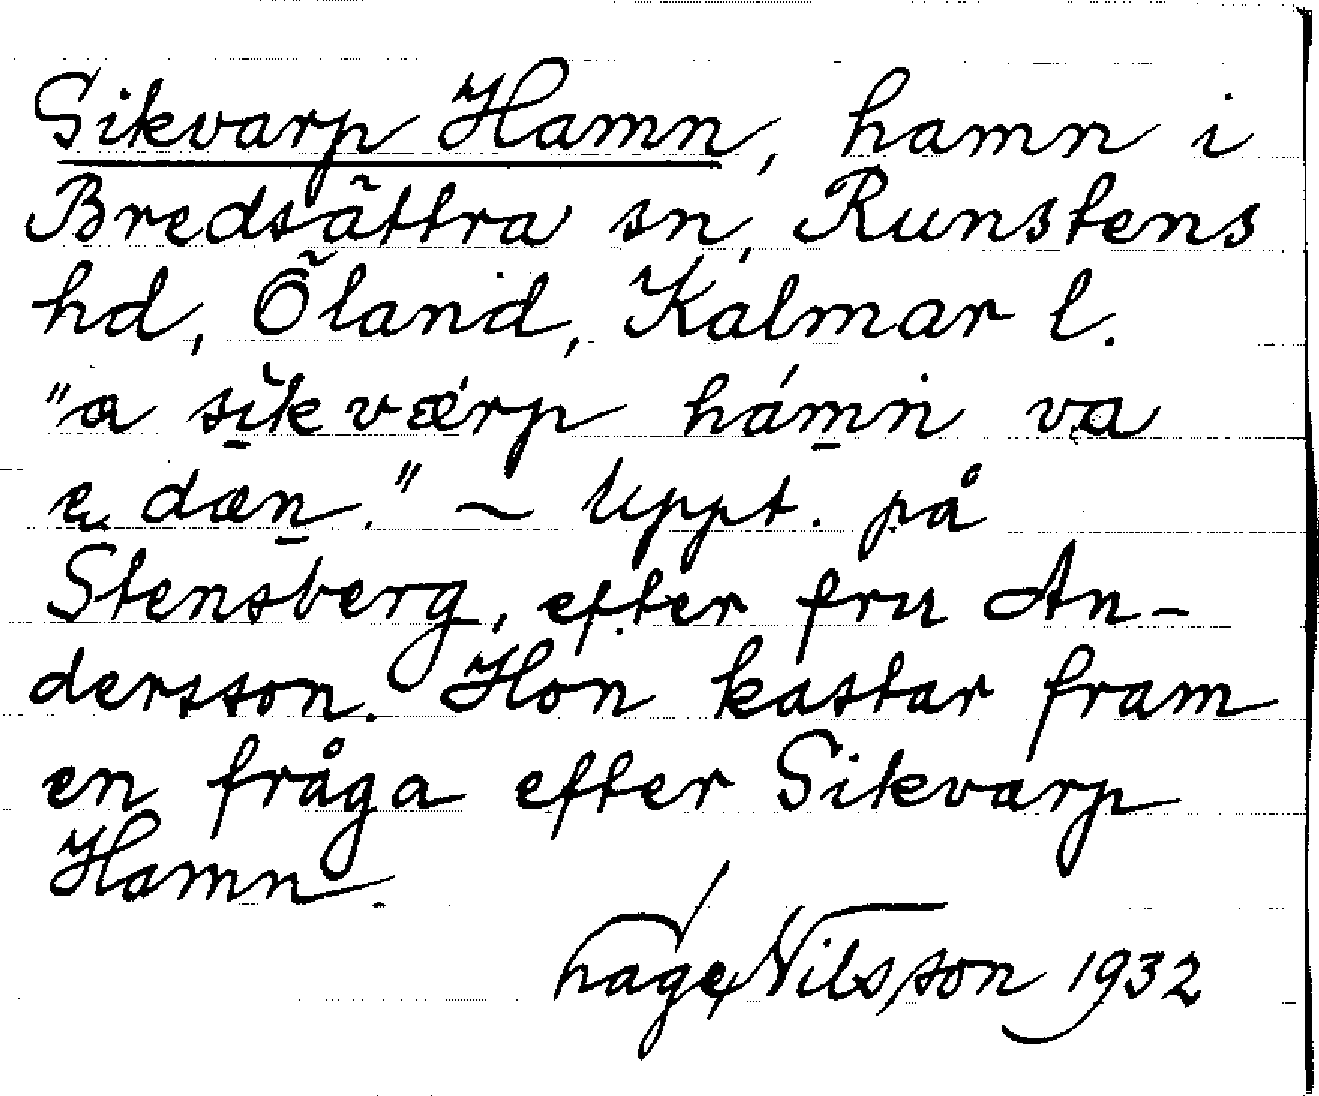 Sikvarp Hamn, hamn i
Bredsättra sn, Runstens
hd, Öland, Kalmar l.
"a sìkværp hámn va
e dæn." ~ Uppt. på
Stensberg, efter fru An-
dersson. Hon kastar fram
en fråga efter Sikvarp
Hamn.
Hage Nilsson 1932